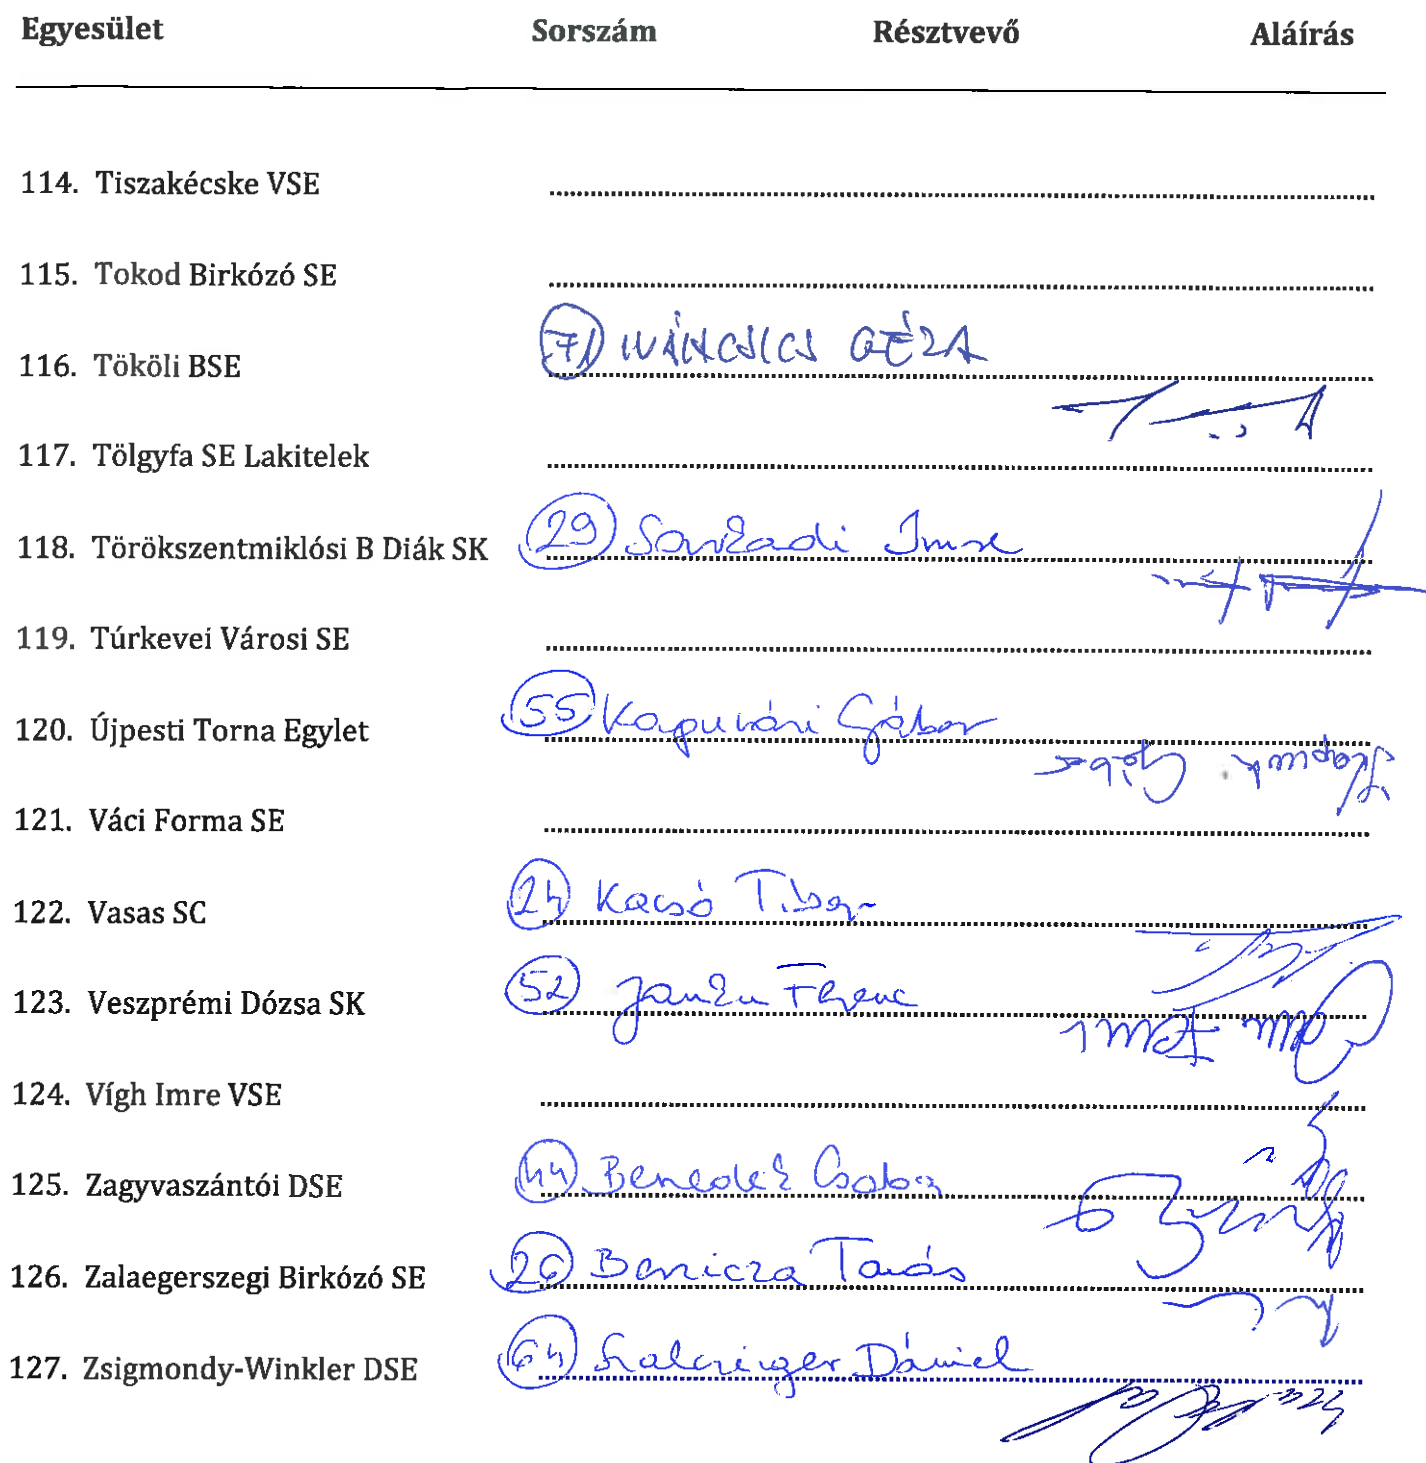 Egyesület Sorszám Résztvevő Aláírás
114. Tiszakécske VSE
115. Tokod Birkózó SE
116. Tököli BSE 71 IVÁNCSICS GÉZA
117. Tölgyfa SE Lakitelek
118. Törökszentmiklósi B Diák SK 29 Imre
119. Túrkevei Városi SE
120. Újpesti Torna Egylet 55 Kapuvári Gábor
121. Váci Forma SE
122. Vasas SC 24 Kacsó Tibor
123. Veszprémi Dózsa SK 52 Ferenc
124. Vígh Imre VSE
125. Zagyvaszántói DSE 44 Benedek Csaba
126. Zalaegerszegi Birkózó SE 26
127. Zsigmondy-Winkler DSE 64 Dániel